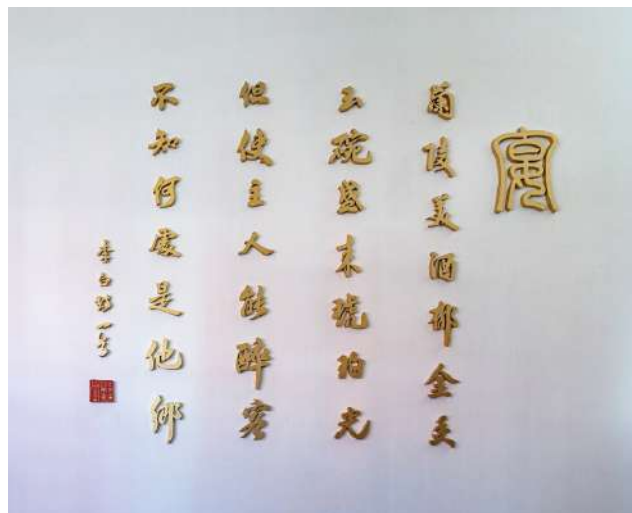 宴
蘭陵美酒郁金香
玉碗盛来琥珀光
但使主人能醉客
不知何處是他鄉
李白詩一首